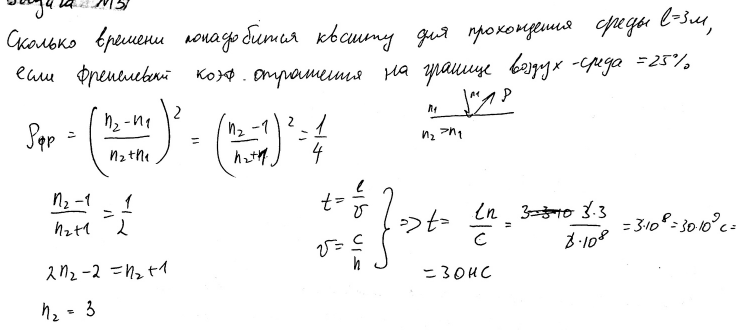 Задача №31
Сколько времени понадобится кванту для прохождения среды l=3м,
если френелевский коэф. отражения на границе воздух-среда =25%
ρфр = ((n₂-n₁)/(n₂+n₁))² = ((n₂-1)/(n₂+1))² = 1/4
n₁ n₁ ρ
n₂>n₁
(n₂-1)/(n₂+1) = 1/2
2n₂-2 = n₂+1
n₂ = 3
t = l/v
v = c/n
} => t = ln/c = 3·3/3·10⁸ = 3·10⁸ = 30·10⁹ с =
= 30нс